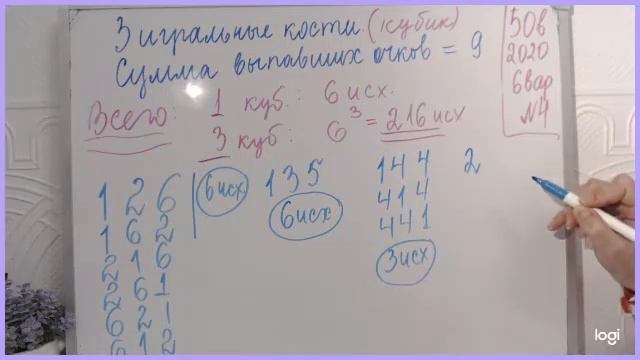 3 игральные кости (кубик)
Сумма выпавших очков = 9
50в
2020
6вар
№4
Всего: 1 куб.: 6 исх.
3 куб: 6³ = 216 исх
1 2 6
1 6 2
2 1 6
2 6 1
6 2 1
6 1 2
6 исх
1 3 5
6 исх
1 4 4
4 1 4
4 4 1
3 исх
2
logi